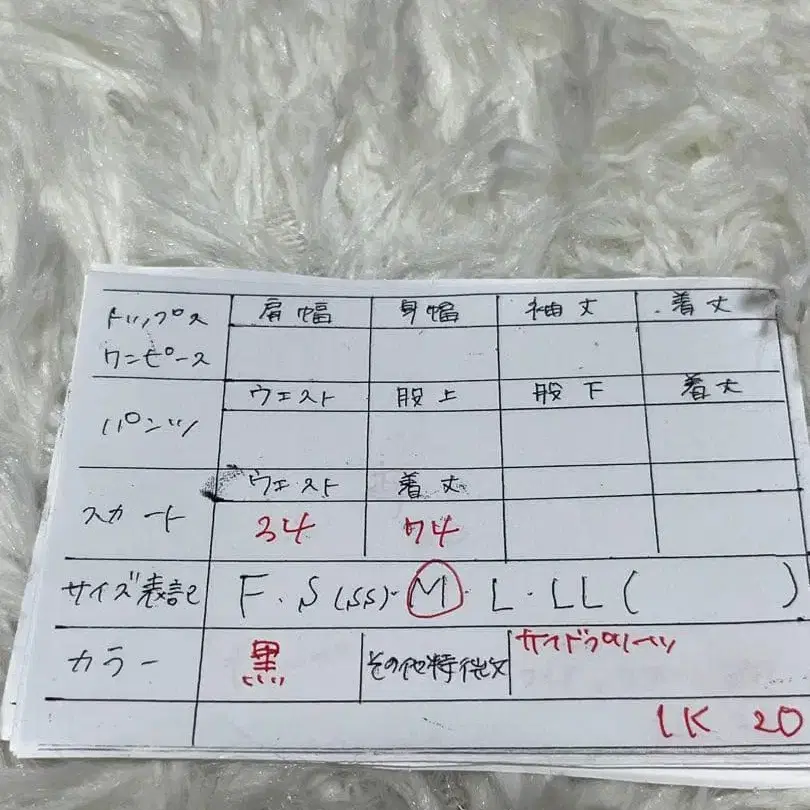 トップス 肩幅 身幅 袖丈 着丈
ワンピース
パンツ ウエスト 股上 股下 着丈
スカート ウエスト 着丈
34 74
サイズ表記 F・S(SS)・M・L・LL( )
カラー 黒 その他特徴文 サイドプリーツ
1K 20